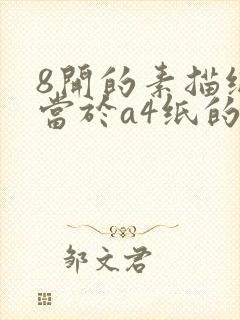 8開的素描
當於a4纸的
邹文君